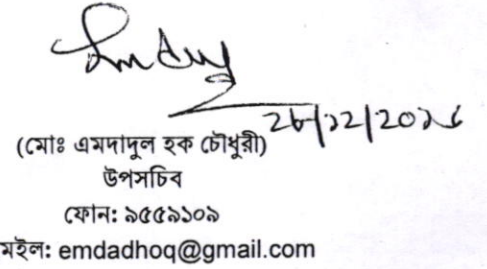 (মোঃ এমদাদুল হক চৌধুরী)
উপসচিব
ফোন: ৯৫৫৯১০৯
মইল: emdadhoq@gmail.com